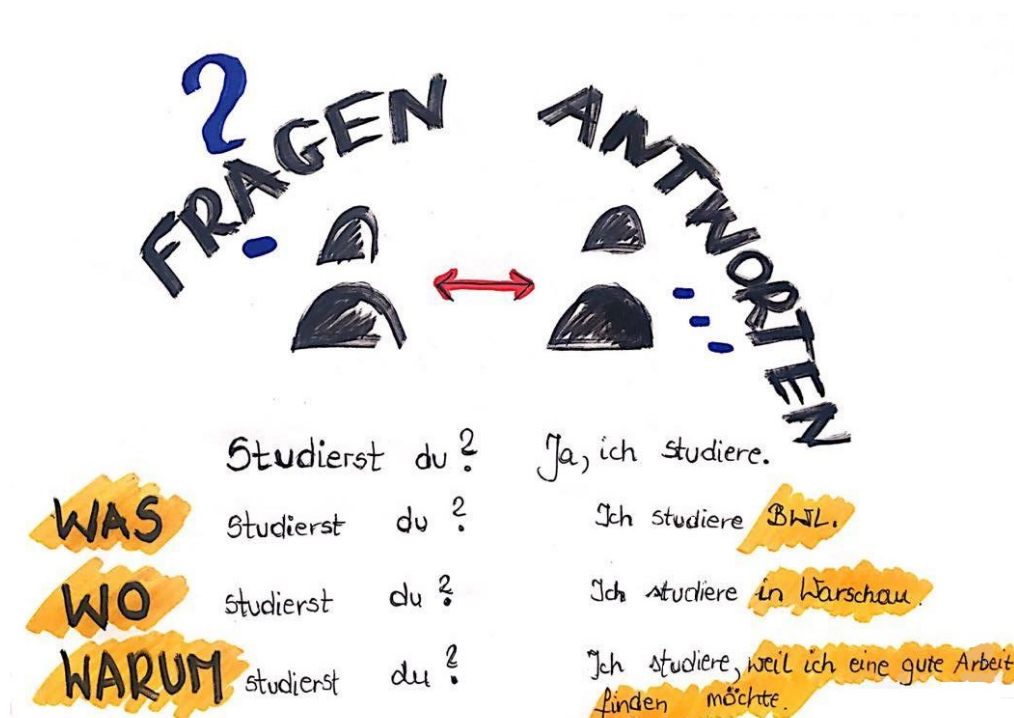 ?
FRAGEN ANTWORTEN
Studierst du? Ja, ich studiere.
WAS studierst du? Ich studiere BWL.
WO studierst du? Ich studiere in Warschau.
WARUM studierst du? Ich studiere, weil ich eine gute Arbeit
finden möchte.